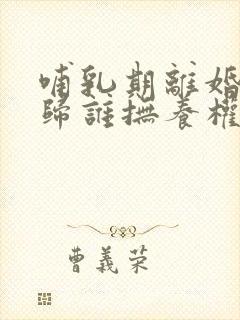 哺乳期離婚
歸誰撫養權
曹義荣